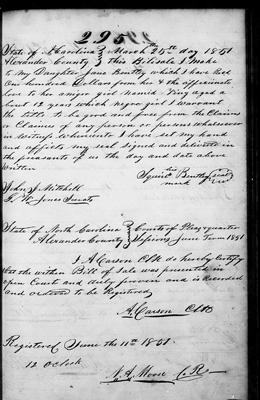 295
State of N Carolina } March 25th day 1851
Alexander County } this Bill sale I make
to my Daughter Jane Bentley which I have Recd
One hundred Dollars from her & the affectionate
Love to her a negro girl Named Viney aged a
bout 12 years which negro girl I warrant
the title to be good and free from the Claims
or Claimes of any person or persons whatsoever
in Witness whereunto I have set my hand
and affixed my seal signed and delivered in
the presents of us the day and date above
written
Bentley seal
mark
John J Mitchell
Jones Jurat
State of North Carolina } Courts of Pleas & quarter
Alexander County } Sessions June Term 1851
I A Carson Clk do hereby Certify
that the within Bill of Sale was presented in
open Court and duly proven and is Recorded
and ordered to be Registered
A. Carson Clk
Registered June the 11th 1851
12 oclock
Moore C. R.